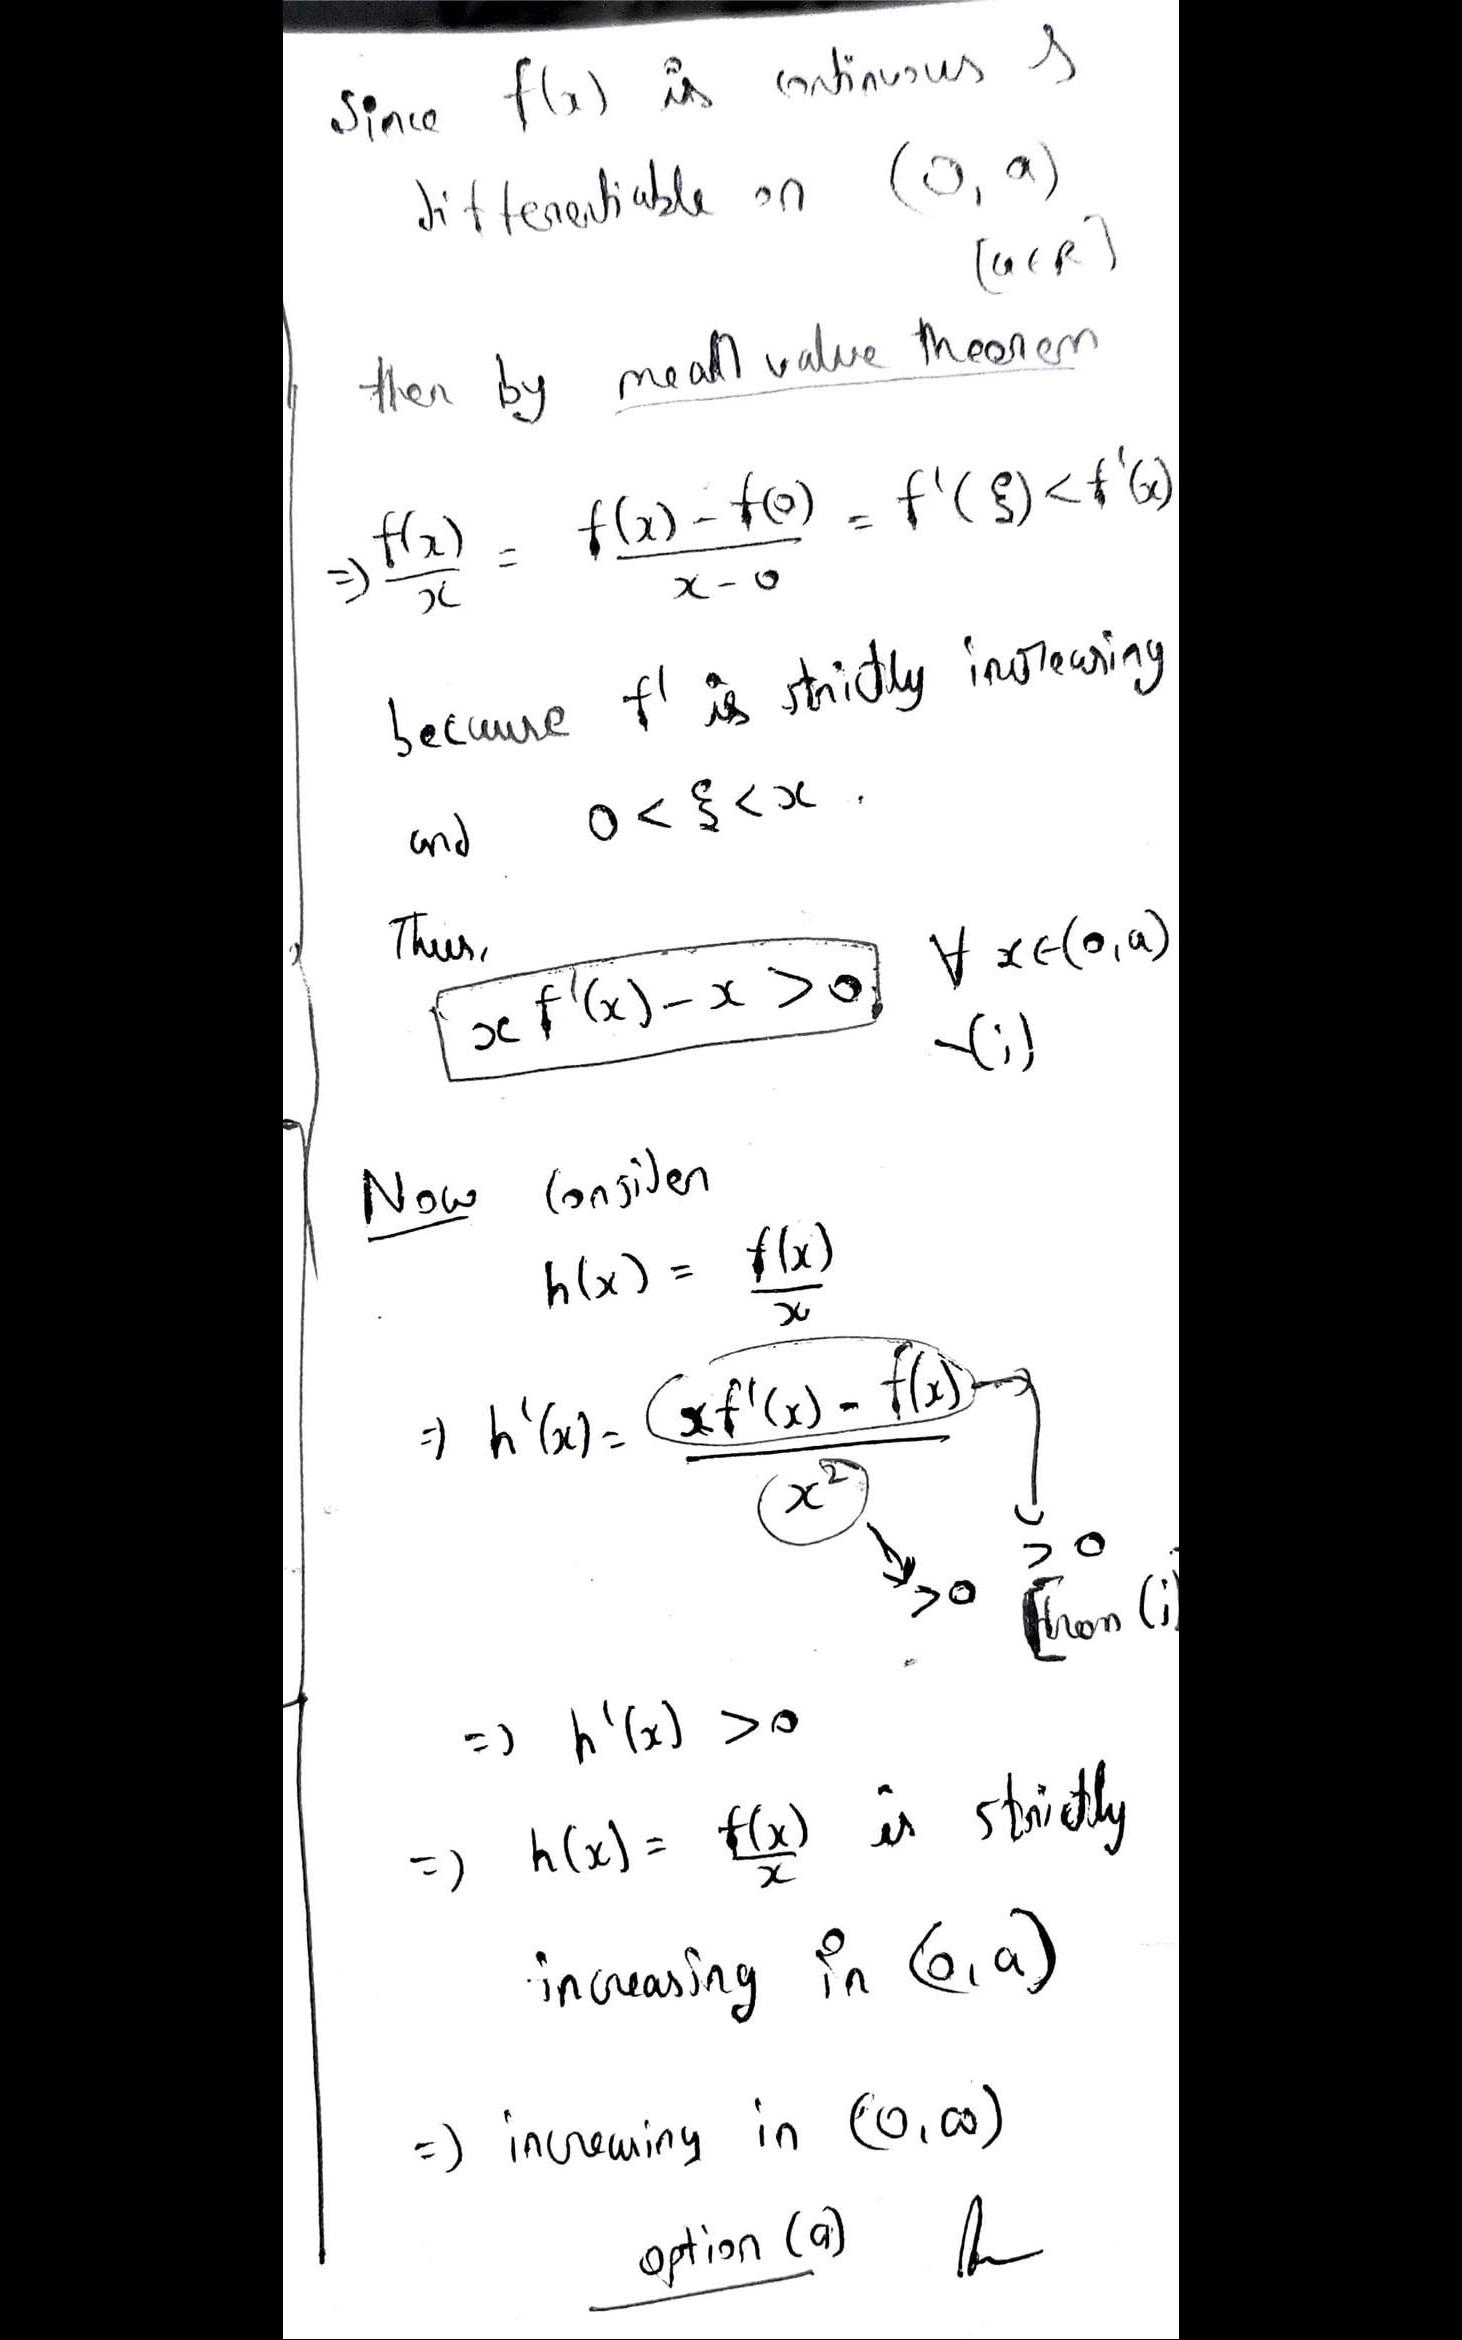 Since f(x) is continuous &
differentiable on (0, a)
[a∈R]
then by mean value theorem
⇒ f(x)/x = (f(x) - f(0))/(x - 0) = f'(ξ) < f'(x)
because f' is strictly increasing
and 0 < ξ < x .
Thus,
x f'(x) - x > 0 ∀ x∈(0,a)
-(i)
Now Consider
h(x) = f(x)/x
⇒ h'(x) = (x f'(x) - f(x))/x²
> 0
> 0 [from (i)
⇒ h'(x) > 0
⇒ h(x) = f(x)/x is strictly
increasing in (0,a)
⇒ increasing in (0,∞)
option (a)